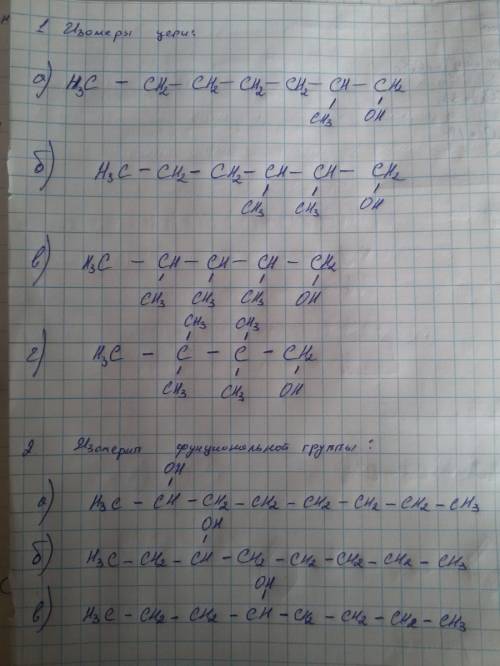 1 Изомеры цепи:
а) H₃C – CH₂ – CH₂ – CH₂ – CH₂ – CH – CH₂
CH₃ OH
б) H₃C – CH₂ – CH₂ – CH – CH – CH₂
CH₃ CH₃ OH
в) H₃C – CH – CH – CH – CH₂
CH₃ CH₃ CH₃ OH
CH₃ CH₃
г) H₃C – C – C – CH₂
CH₃ CH₃ OH
2 Изомерия функциональной группы:
OH
а) H₃C – CH – CH₂ – CH₂ – CH₂ – CH₂ – CH₂ – CH₃
OH
б) H₃C – CH₂ – CH – CH₂ – CH₂ – CH₂ – CH₂ – CH₃
OH
в) H₃C – CH₂ – CH₂ – CH – CH₂ – CH₂ – CH₂ – CH₃